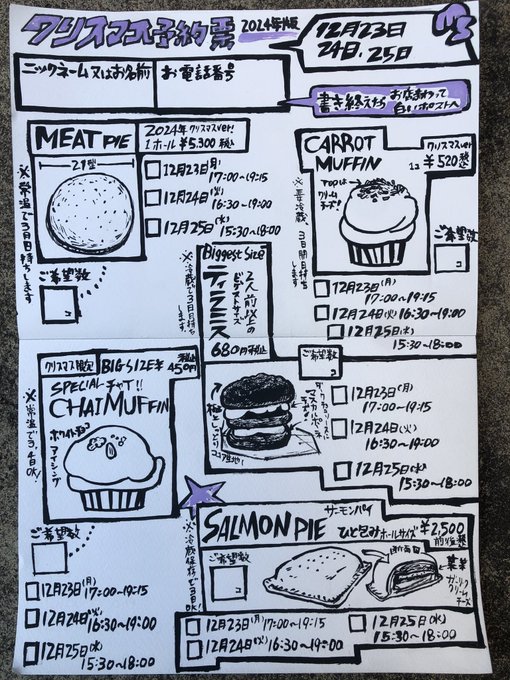 クリスマス予約票 2024年版
12月23日
24日、25日
ニックネーム又はお名前
お電話番号
書き終えたら
お店まわって
白いポストへ
MEAT PIE
2024年クリスマスver!
1ホール ¥5,300 税込
21型
※常温で3日間持ちます
12月23日(月)
17:00~19:15
12月24日(火)
16:30~19:00
12月25日(水)
15:30~18:00
ご希望数
コ
CARROT
MUFFIN
クリスマスver
1コ ¥520 税込
TOPは
クリーム
チーズ!
ご希望数
コ
12月23日(月)
17:00~19:15
12月24日(火) 16:30~19:00
12月25日(水)
15:30~18:00
Biggest Size
2人前以上の
ビッグサイズ
ティラミス
680円税込
ご希望数
コ
マスカルポーネ
極しっとり
ココア生地!
12月23日(月)
17:00~19:15
12月24日(火)
16:30~19:00
12月25日(水)
15:30~18:00
クリスマス限定
BIG SIZE
税込
450円
SPECIALチャイ!!
CHAI MUFFIN
ホワイトチョコ
アイシング
※常温で3,4日OK!
ご希望数
12月23日(月)
17:00~19:15
12月24日(火)
16:30~19:00
12月25日(水)
15:30~18:00
SALMON PIE
サーモンパイ
ひと包みホールサイズ
¥2,500
※冷蔵保存で3日OK!
ご希望数
コ
断面図
ガーリック
クリーム
チーズ
12月23日(月) 17:00~19:15
12月24日(火) 16:30~19:00
12月25日(水)
15:30~18:00